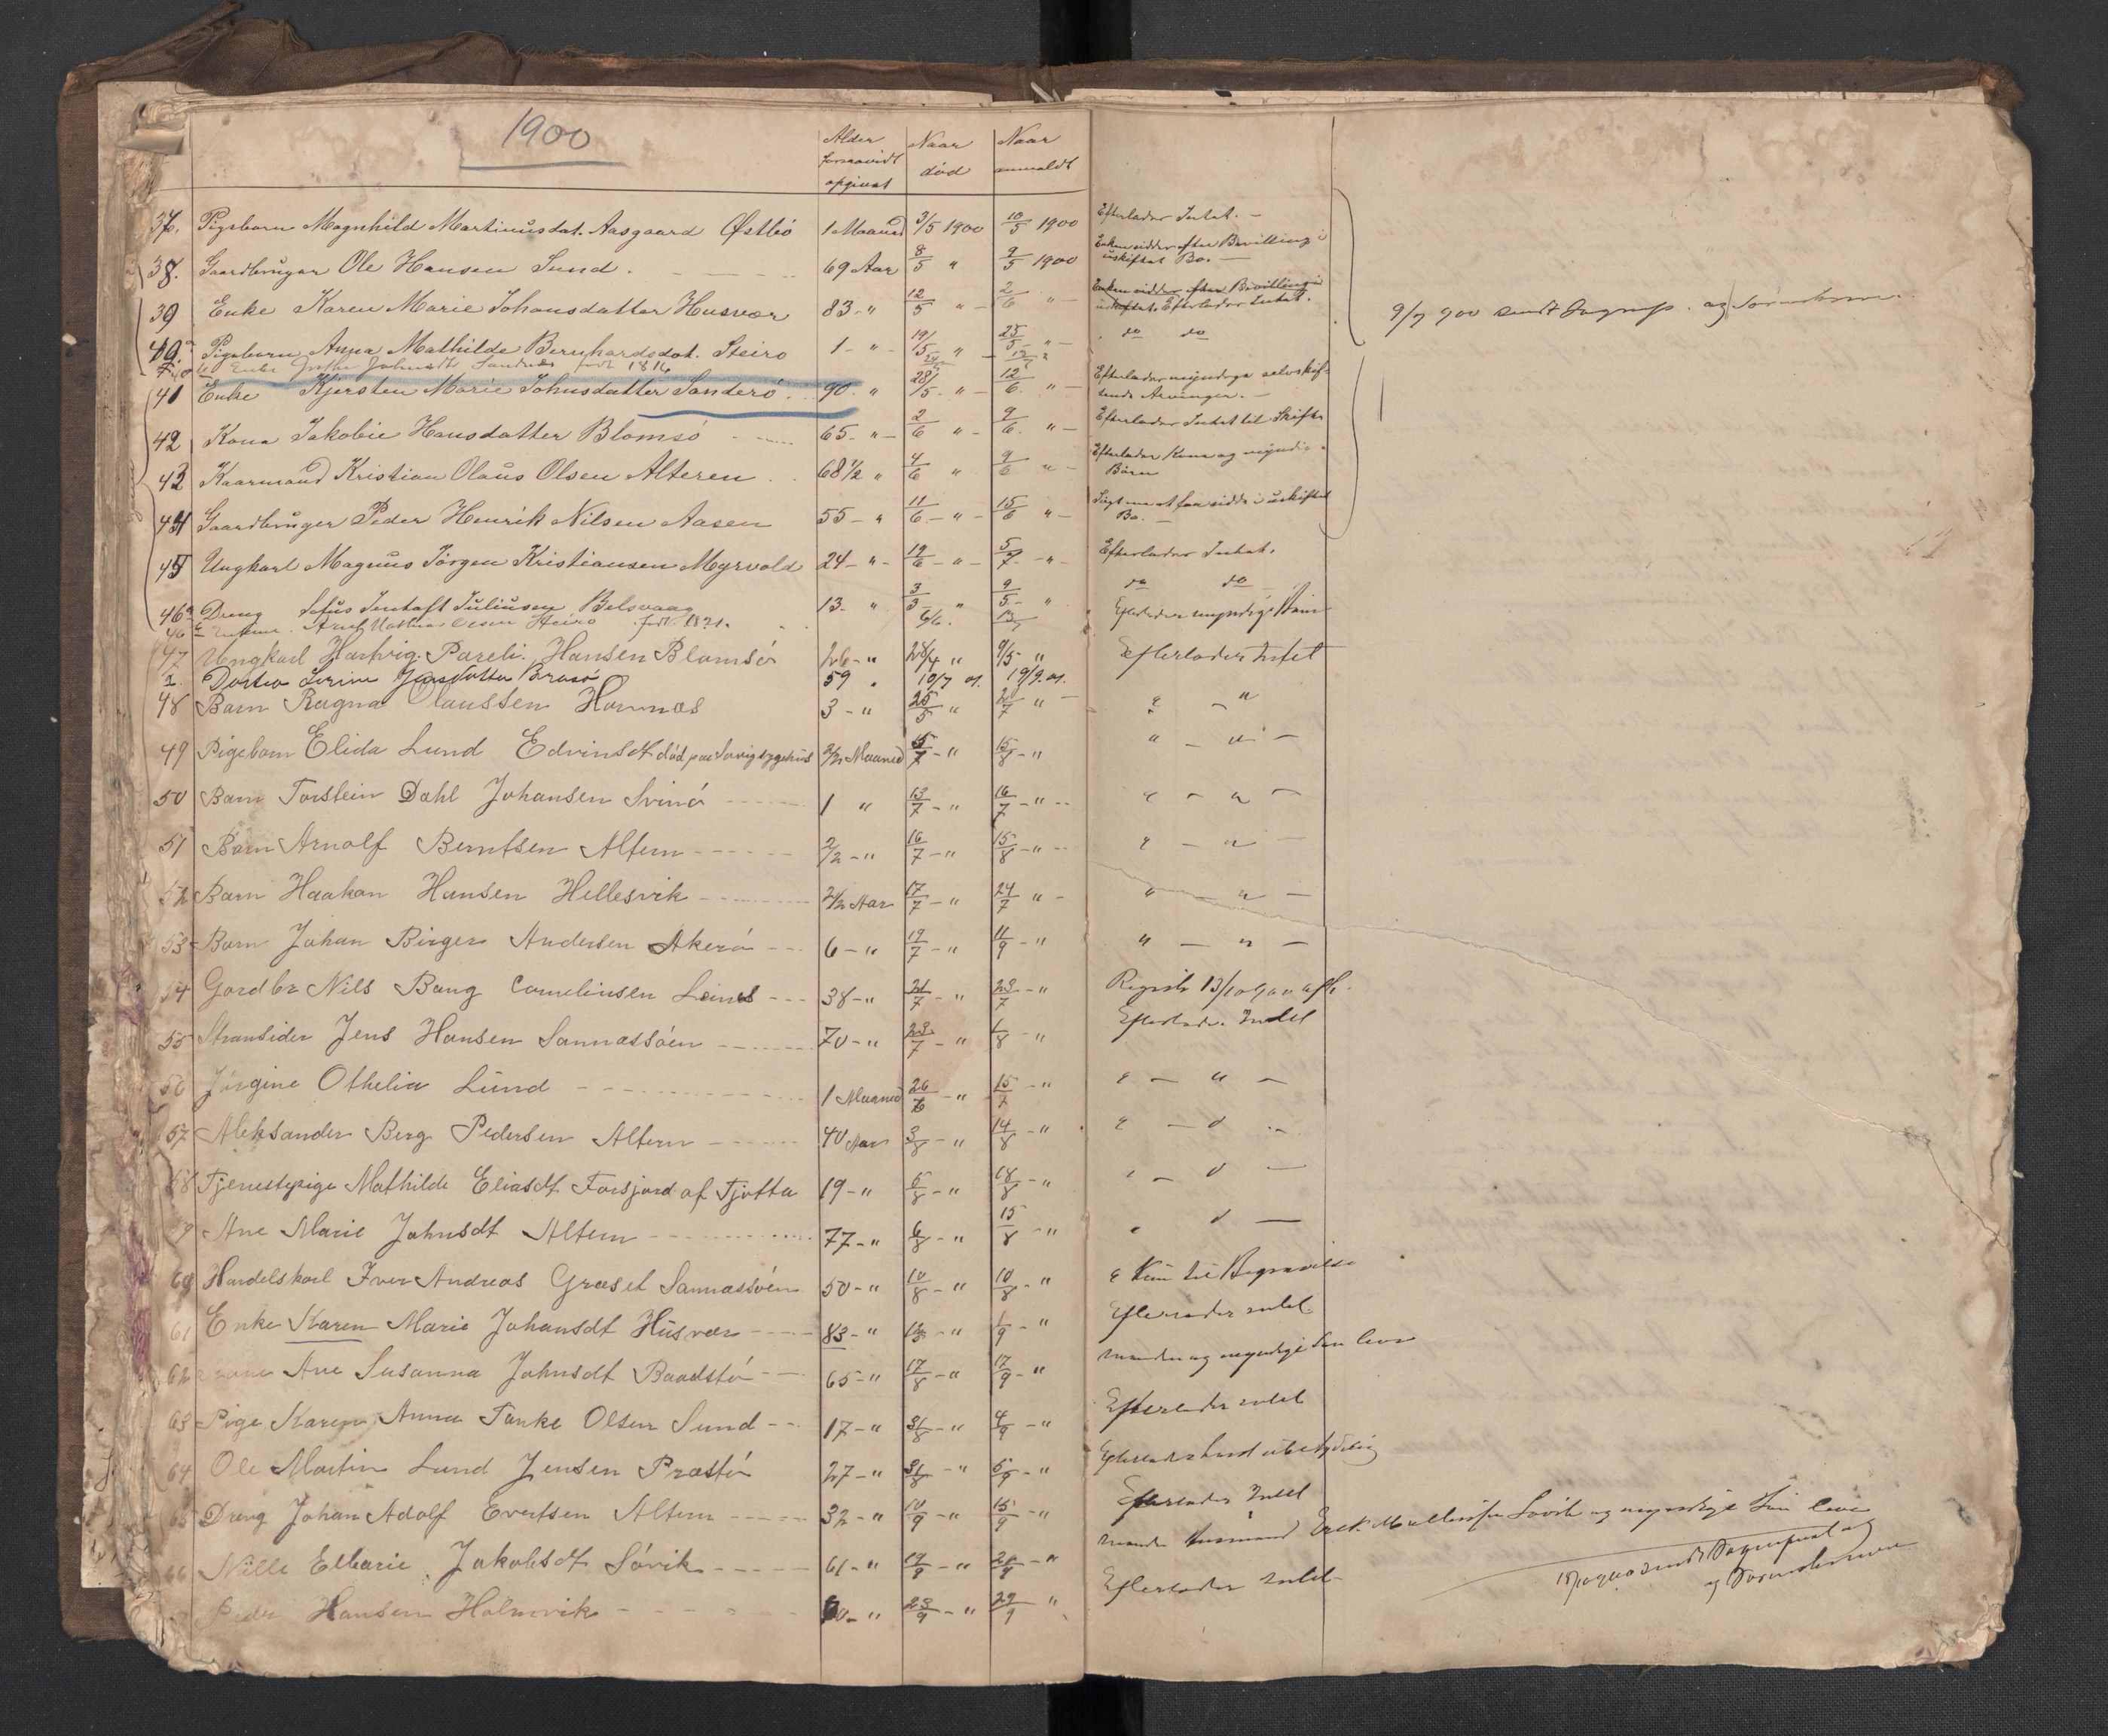 1900
Alder forsaavidt opgivet Naar død Naar anmeldt
37. Pigebarn Magnhild Martinusdat. Aasgaard Østbö 1 Maaned 3/5 1900 10/5 1900 Efterlader Intet. —
38. Gaardbruger Ole Hansen Sund. 69 Aar 8/5 " 9/5 1900 Enken sidder efter Bevilling i uskiftet Bo. —
39 Enke Karen Marie Johansdatter Husvær 83 - " 12/5 " 2/6 " Enken sidder efter Bevilling i uskiftet. Efterlader Intet.
9/7 900 sendt
40. a Pigebarn Anna Mathilde Bernhardsdat. Steiro 1 - " 19/5 " 25/5 " do do
Enke Johnsdt Sandnes født 1816
41 Enke Kjersten Marie Johnsdatter Sanderö 90 - " 28/5 - " 12/6 " Efterlader myndige selvskiftende Arvinger. —
42 Kona Jakobie Hansdatter Blomsö 65 - " 2/6 " 9/6 " Efterlader Intet til Skifte
43 Kaarmand Kristian Olaus Olsen Alteren 68 1/2 " 4/6 " 9/6 " Efterlader Kone og myndige Börn
44 Gaardbruger Peder Henrik Nilsen Aasen 55 - " 11/6 - " 15/6 " Sögt om at faa sidde i uskiftet Bo. —
45 Ungkarl Magnus Jörgen Kristiansen Myrvold 24 - " 19/6 - " 5/7 - " Efterlader Intet.
46 a Dreng Sofus Julinsen Belsvaag 13 - " 3/3 " 9/5 - " do do
46 b Olsen Steiro født 1821. 6/6. Efterlader myndige Börn
47 Ungkarl Hartvig Pareli Hansen Blomsö 26 - " 28/4 " 9/5 " Efterlader Intet
Dortea Serine Jensdatter Brasö 59 " 10/7 01. 19/9. 01.
48 Barn Ragna Olaussen Hamnes 3 - " 25/5 " 2/7 " " "
49 Pigebarn Elida Lund Edvinsdt død paa Sovig sygehus 2/12 Maaned 5/7 - " 15/8 - " " — " —
50 Barn Torstein Dahl Johansen Svinö 1 " 13/7 - " 16/7 - " " — " —
51 Barn Arnolf Berntsen Altern 2/12 - " 16/7 - " 15/8 - " " — " —
52 Barn Haakon Hansen Hellesvik 2 1/2 Aar 17/7 - " 24/7 " " — " —
53 Barn Johan Birger Andersen Akerö 6 - " 19/7 - " 11/9 - " " — " —
54 Gardbr Nils Bang Cornelinsen Leines 38 - " 21/7 - " 23/7 - " Registr 13/10 900
55 Stransider Jens Hansen Sannessöen 70 - " 23/7 - " 1/8 - " Efterlader Intet
56 Jörgine Othelia Lund 1 Maaned 26/7 - " 15/7 - " " — " —
57 Aleksander Berg Pedersen Altern 40 Aar 3/8 - " 14/8 - " " — "
58 Tjenestepige Mathilde Eliasdt Forsjord af Tjötta 19 - " 5/8 - " 18/8 - " " — " —
59 Ane Marie Johnsdt Altern 77 - " 6/8 - " 15/8 - " " " —
60 Handelskarl Iver Andreas Græset Sannessöen 50 - " 10/8 - " 10/8 - " Kun til Begravelse
61 Enke Karen Marie Johansdt Husvær 83 - " 12/5 - " 1/9 - " Efterlader intet
62 Kone Ane Susanna Johnsdt Baadstö 65 - " 17/8 - " 17/9 - " Manden og myndige Börn lever
63 Pige Karen Anna Tanke Olsen Sund 17 - " 31/8 - " 4/9 - " Efterlader intet
64 Ole Martin Lund Jensen Præstö 27 - " 31/8 - " 5/9 - " Efterlader ubetydelig
65 Dreng Johan Adolf Evertsen Altern 32 - " 10/9 - " 15/9 - " Efterlader Intet
66 Nille Elbarie Jakobsdt Sövik 61 - " 19/9 - " 21/9 - " Manden Husmand Sövik og myndige Börn lever
Peder Hansen Holmvik " 23/9 - " 29/9 " Efterlader intet
sendt